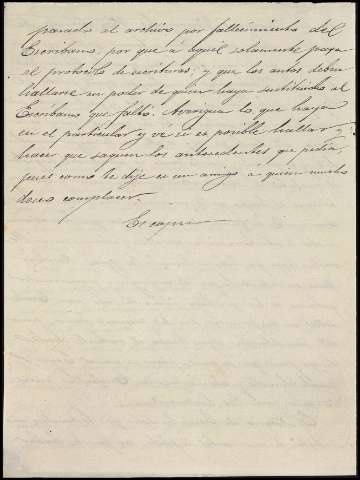 pasado al archivo por fallecimiento del
Escribano, por que á aquel solamente pasa
el protocolo de escrituras; y que los autos deben
hallarse en poder de quien haya sustituido al
Escribano que faltó. Averigua lo que haya
en el particular y ve si es posible hallar y
hacer que saquen los antecedentes que pedia,
pues como te dije es un amigo a quien mucho
deseo complacer.
Es copia